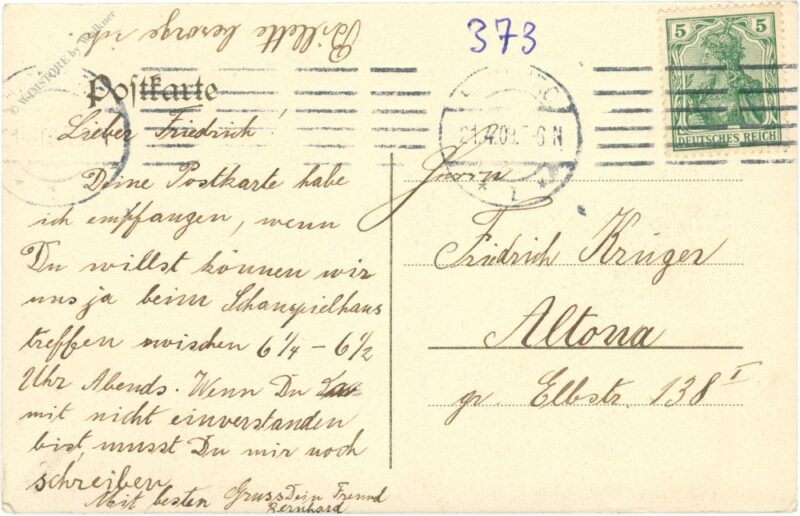 Billette besorge ich.
373
© WIMSTORE by Falkner
Postkarte
5 5
DEUTSCHES REICH
21.4.09. 5-6 N
1
Lieber Friedrich!
Deine Postkarte habe
ich empfangen, wenn
Du willst können wir
uns ja beim Schauspielhaus
treffen zwischen 6 1/4 – 6 1/2
Uhr Abends. Wenn Du
mit nicht einverstanden
bist, musst Du mir noch
schreiben.
Mit besten Gruss Dein Freund
Bernhard
Herrn
Friedrich Krüger
Altona
gr. Elbstr. 138 I